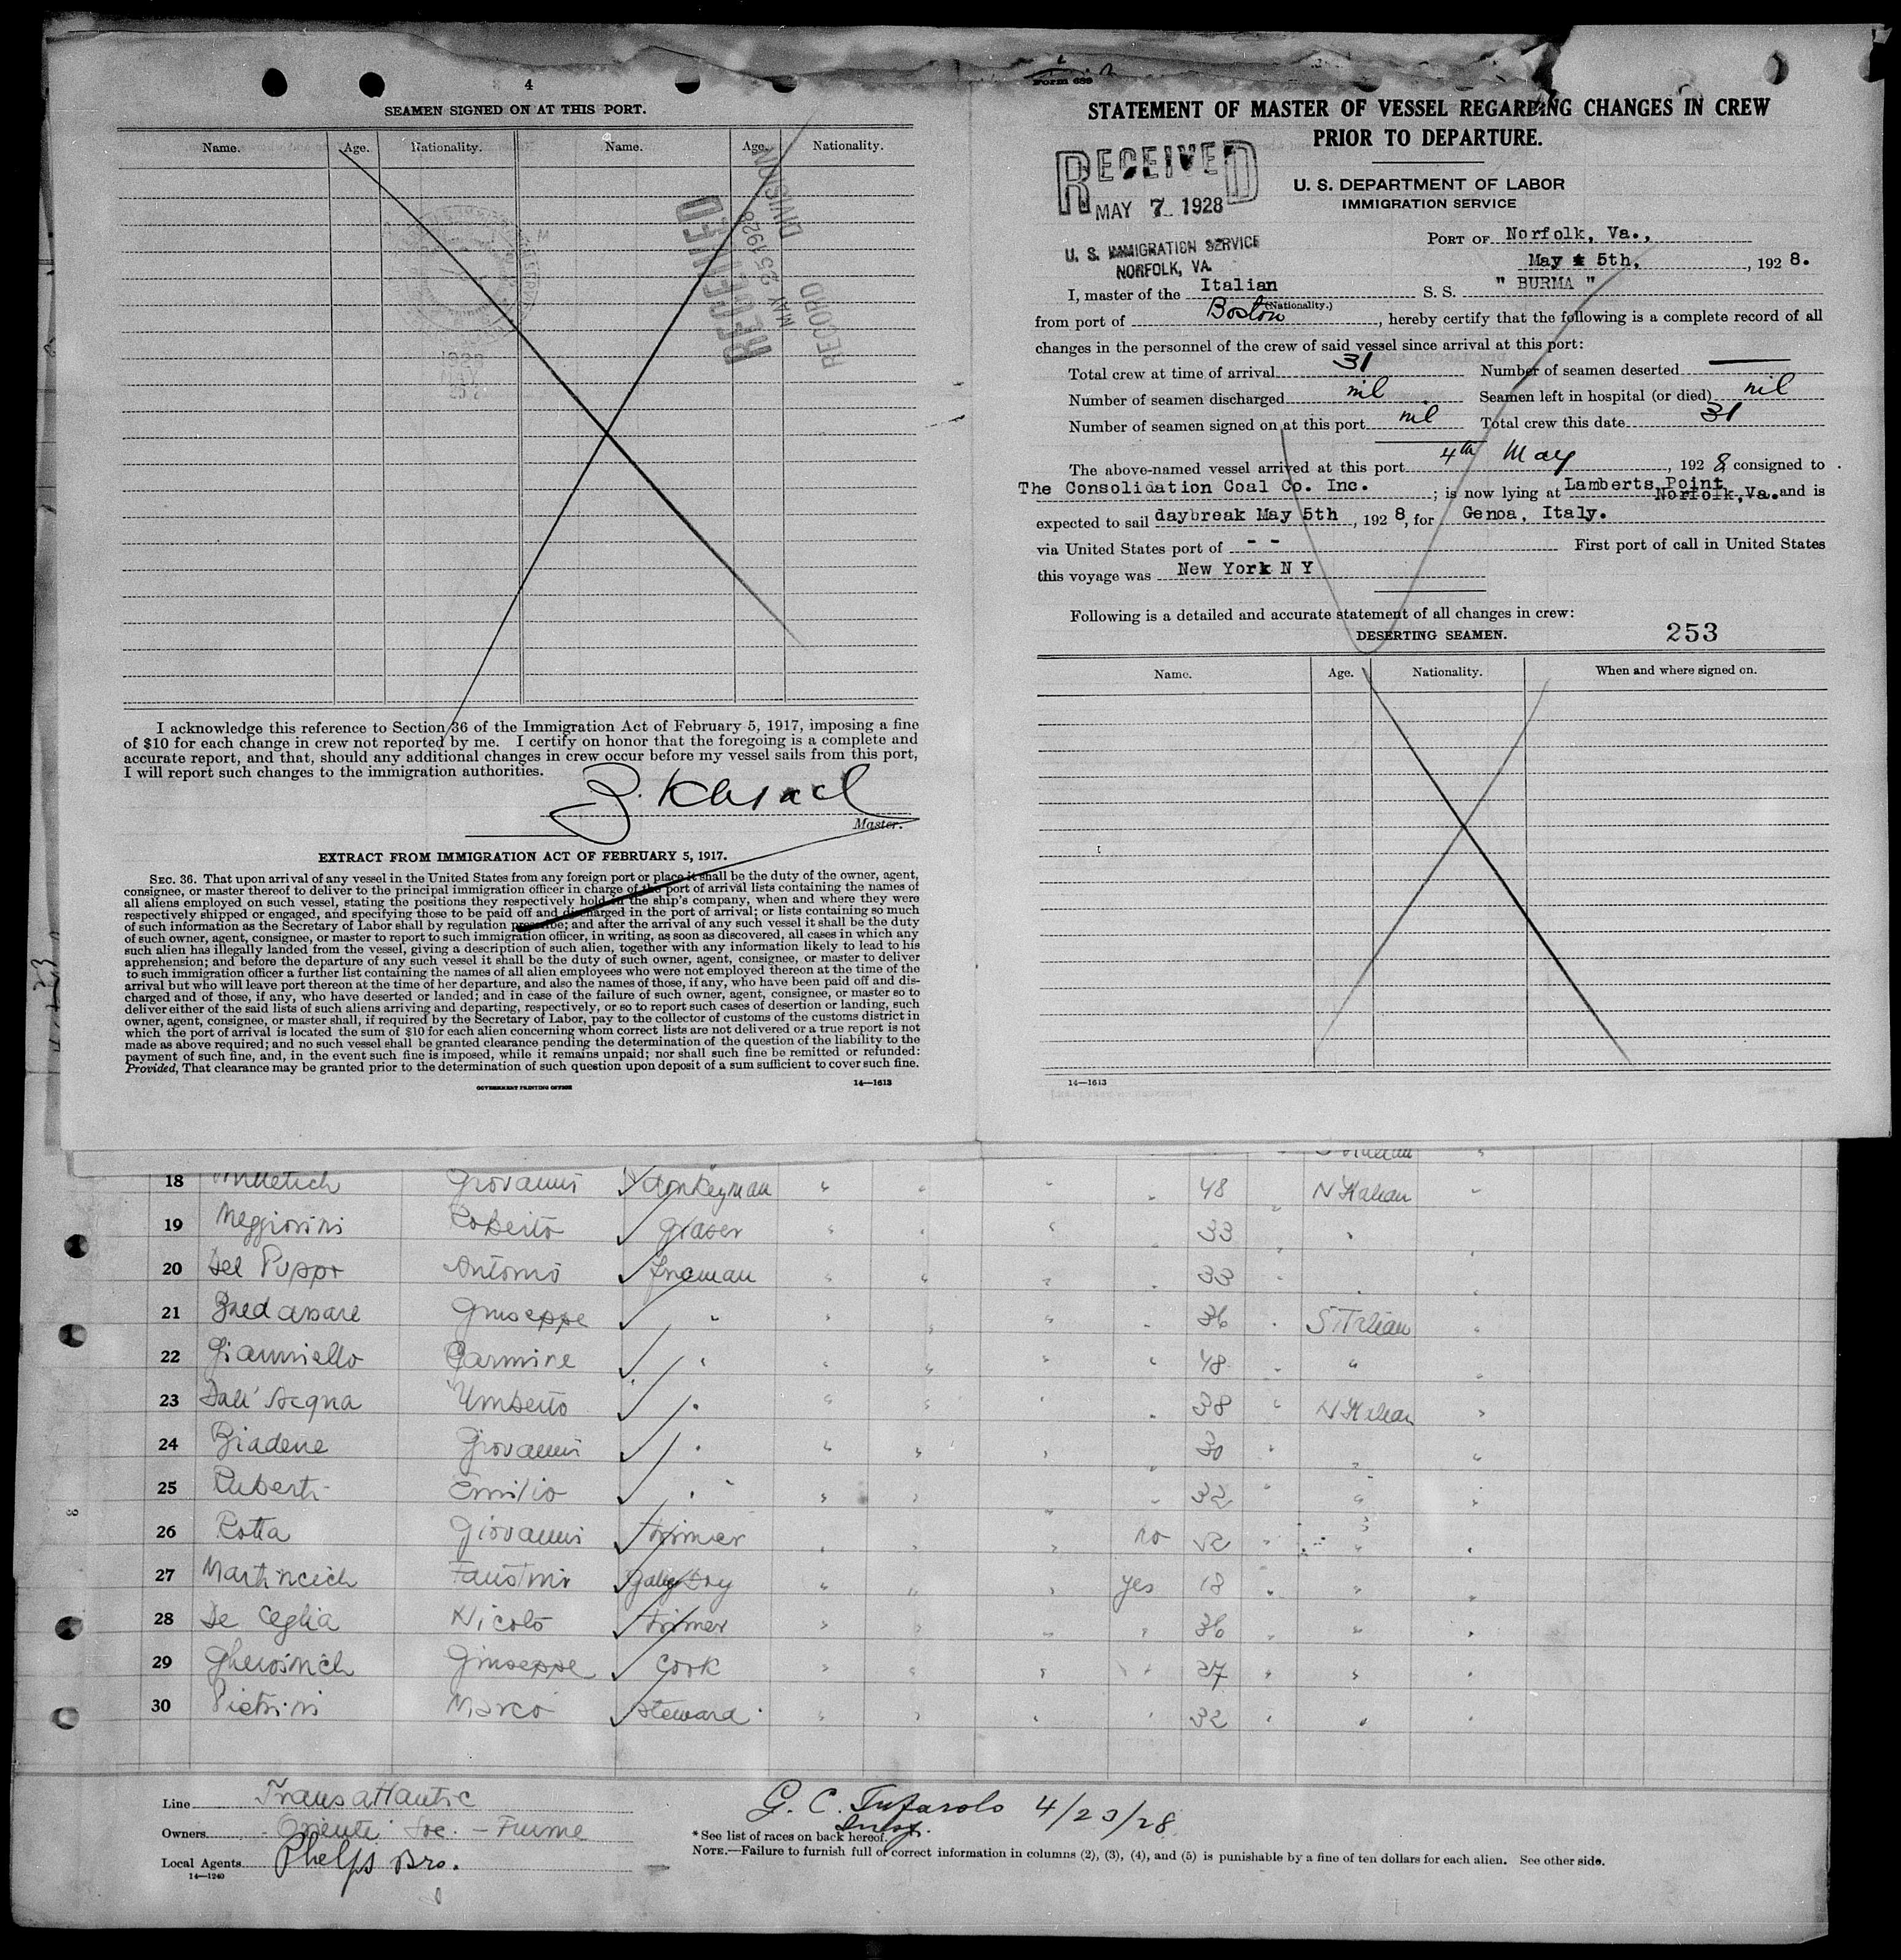 4
SEAMEN SIGNED ON AT THIS PORT.
Name. Age. Nationality. Name. Age. Nationality.
RECEIVED
MAY 25 1928
RECORD DIVISION
1928
MAY
I acknowledge this reference to Section 36 of the Immigration Act of February 5, 1917, imposing a fine
of $10 for each change in crew not reported by me. I certify on honor that the foregoing is a complete and
accurate report, and that, should any additional changes in crew occur before my vessel sails from this port,
I will report such changes to the immigration authorities.
Master.
EXTRACT FROM IMMIGRATION ACT OF FEBRUARY 5, 1917.
SEC. 36. That upon arrival of any vessel in the United States from any foreign port or place it shall be the duty of the owner, agent,
consignee, or master thereof to deliver to the principal immigration officer in charge of the port of arrival lists containing the names of
all aliens employed on such vessel, stating the positions they respectively hold in the ship's company, when and where they were
respectively shipped or engaged, and specifying those to be paid off and discharged in the port of arrival; or lists containing so much
of such information as the Secretary of Labor shall by regulation prescribe; and after the arrival of any such vessel it shall be the duty
of such owner, agent, consignee, or master to report to such immigration officer, in writing, as soon as discovered, all cases in which any
such alien has illegally landed from the vessel, giving a description of such alien, together with any information likely to lead to his
apprehension; and before the departure of any such vessel it shall be the duty of such owner, agent, consignee, or master to deliver
to such immigration officer a further list containing the names of all alien employees who were not employed thereon at the time of the
arrival but who will leave port thereon at the time of her departure, and also the names of those, if any, who have been paid off and dis-
charged and of those, if any, who have deserted or landed; and in case of the failure of such owner, agent, consignee, or master so to
deliver either of the said lists of such aliens arriving and departing, respectively, or so to report such cases of desertion or landing, such
owner, agent, consignee, or master shall, if required by the Secretary of Labor, pay to the collector of customs of the customs district in
which the port of arrival is located the sum of $10 for each alien concerning whom correct lists are not delivered or a true report is not
made as above required; and no such vessel shall be granted clearance pending the determination of the question of the liability to the
payment of such fine, and, in the event such fine is imposed, while it remains unpaid; nor shall such fine be remitted or refunded:
Provided, That clearance may be granted prior to the determination of such question upon deposit of a sum sufficient to cover such fine.
GOVERNMENT PRINTING OFFICE 14—1613
Form 689
STATEMENT OF MASTER OF VESSEL REGARDING CHANGES IN CREW
PRIOR TO DEPARTURE.
RECEIVED
MAY 7 1928
U. S. IMMIGRATION SERVICE
NORFOLK, VA.
U. S. DEPARTMENT OF LABOR
IMMIGRATION SERVICE
PORT OF Norfolk, Va.,
May 5th, , 192 8.
I, master of the Italian S. S. " BURMA "
(Nationality.)
from port of Boston, hereby certify that the following is a complete record of all
changes in the personnel of the crew of said vessel since arrival at this port:
Total crew at time of arrival 31 Number of seamen deserted —
Number of seamen discharged nil Seamen left in hospital (or died) nil
Number of seamen signed on at this port nil Total crew this date 31
The above-named vessel arrived at this port 4th May, 192 8, consigned to
The Consolidation Coal Co. Inc. ; is now lying at Lamberts Point Norfolk,Va. and is
expected to sail daybreak May 5th, 192 8, for Genoa, Italy.
via United States port of - - First port of call in United States
this voyage was New York N Y
Following is a detailed and accurate statement of all changes in crew:
DESERTING SEAMEN. 253
Name. Age. Nationality. When and where signed on.
14—1613
18 Giovanni donkeyman " " " " 48 " N Italian "
19 Meggiorini Roberto greaser " " " " 33 " " "
20 Del Puppo Antonio fireman " " " " 33 " " "
21 Baldassare Giuseppe " " " " " 36 " S Italian "
22 Gianniello Carmine " " " " " 48 " " "
23 Dall' Acqua Umberto " " " " " 38 " N Italian "
24 Biadene Giovanni " " " " " 30 " " "
25 Ruberti Emilio " " " " " 32 " " "
26 Rotta Giovanni trimer " " " no 52 " " "
27 Martincich Faustino galley boy " " " yes 18 " " "
28 De Ceglia Nicolò trimer " " " " 36 " " "
29 Gherсinich Giuseppe cook " " " " 27 " " "
30 Pietrini Marco steward " " " " 32 " " "
Line Transatlantic
Owners Oriente Soc. - Fiume
Local Agents Phelps Bro.
14—1240
G. C. Tufarolo 4/23/28
Insp.
* See list of races on back hereof.
NOTE.—Failure to furnish full or correct information in columns (2), (3), (4), and (5) is punishable by a fine of ten dollars for each alien. See other side.